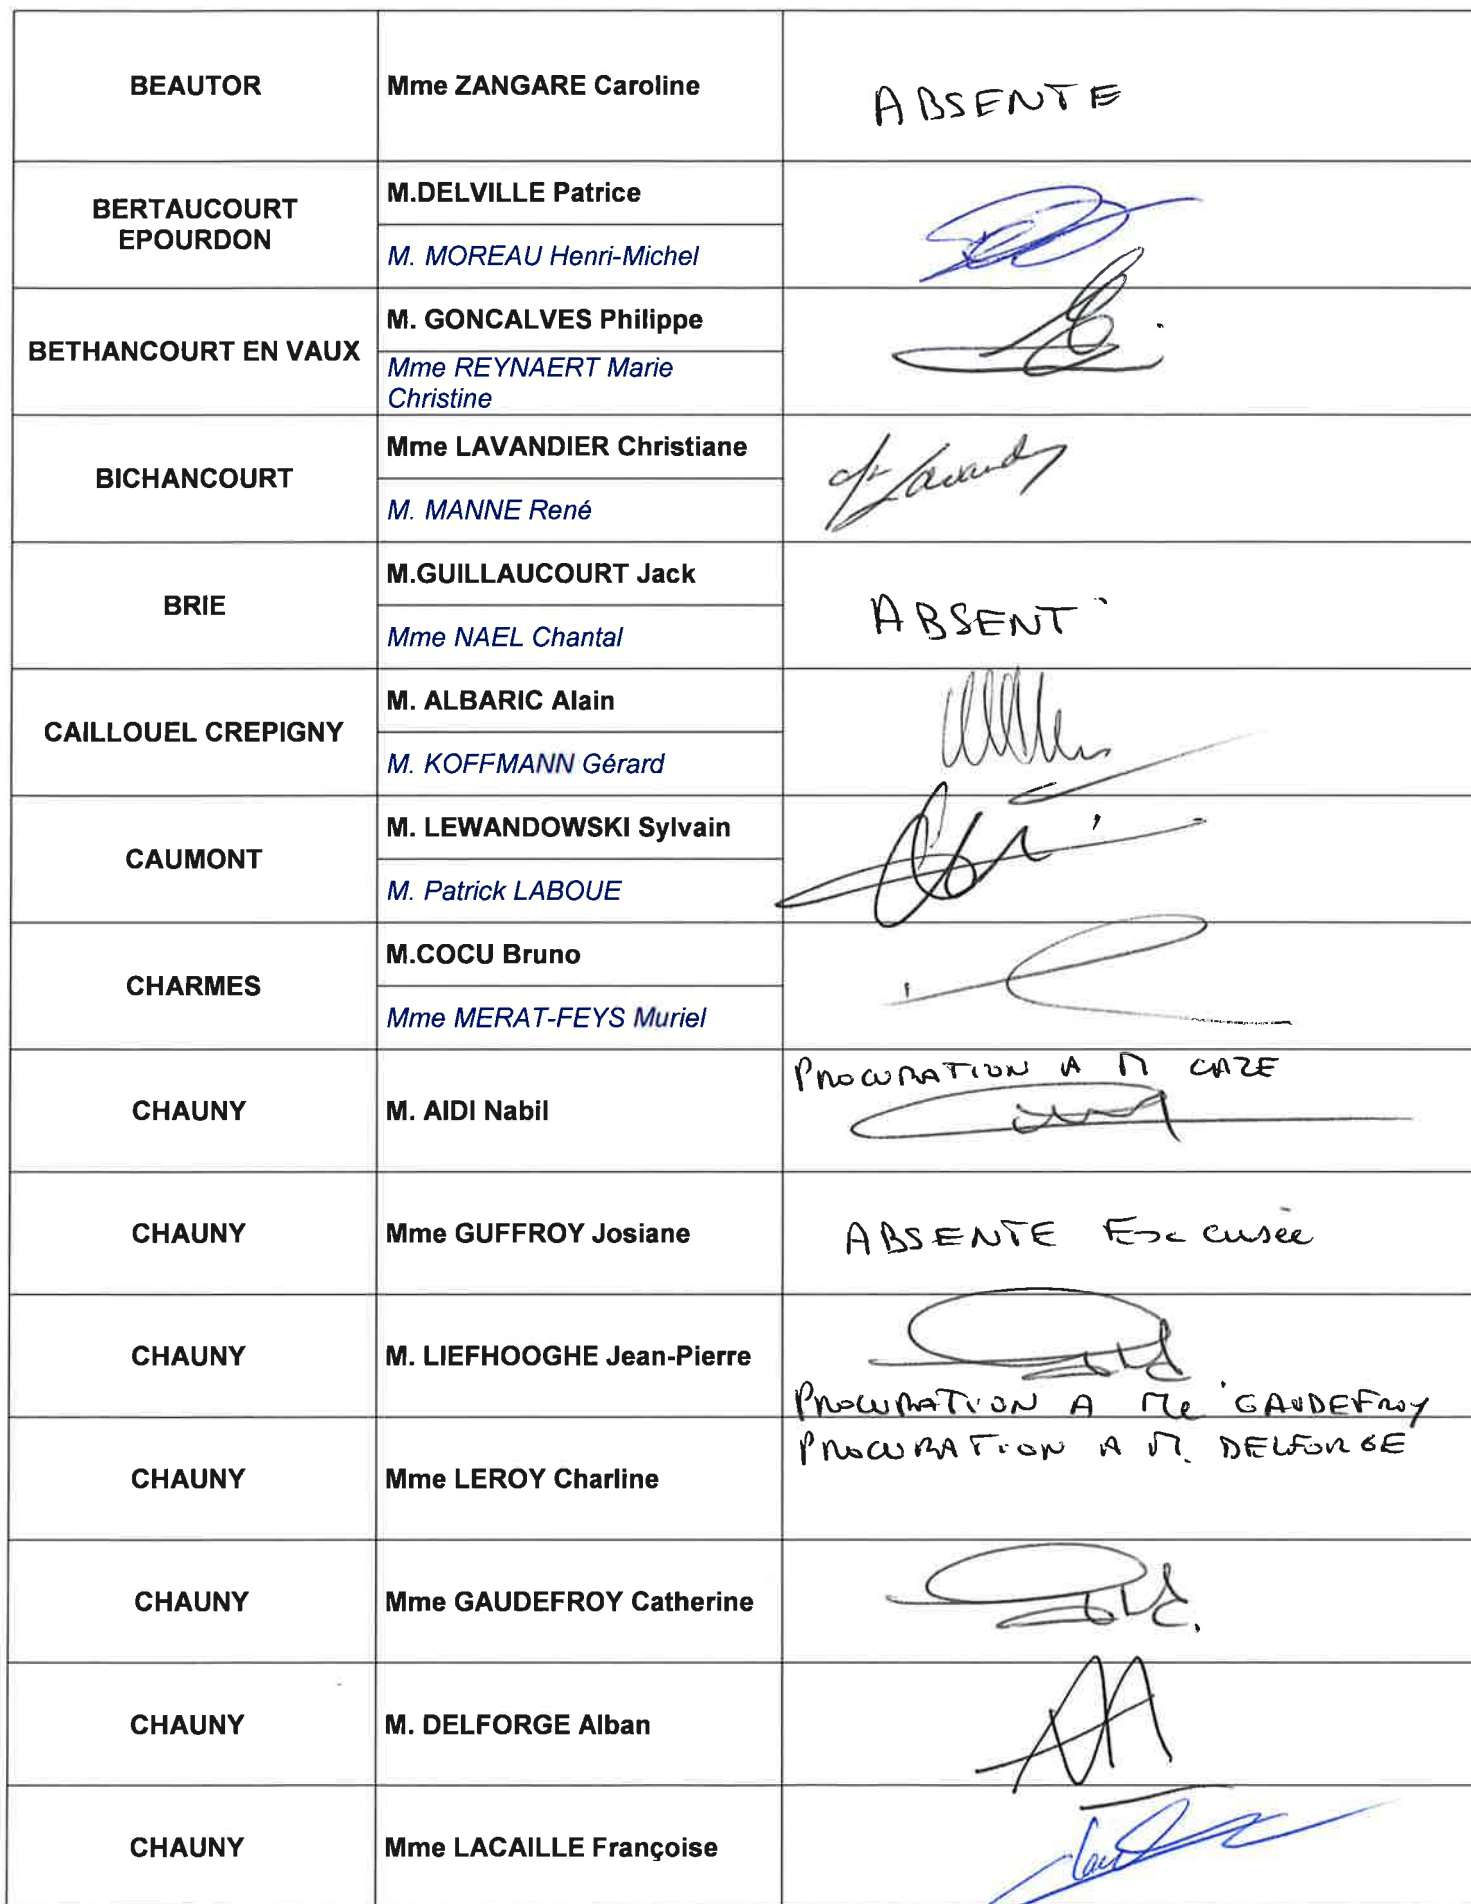 BEAUTOR
Mme ZANGARE Caroline
ABSENTE
BERTAUCOURT
EPOURDON
M.DELVILLE Patrice
M. MOREAU Henri-Michel
BETHANCOURT EN VAUX
M. GONCALVES Philippe
Mme REYNAERT Marie
Christine
BICHANCOURT
Mme LAVANDIER Christiane
M. MANNE René
BRIE
M.GUILLAUCOURT Jack
Mme NAEL Chantal
ABSENT
CAILLOUEL CREPIGNY
M. ALBARIC Alain
M. KOFFMANN Gérard
CAUMONT
M. LEWANDOWSKI Sylvain
M. Patrick LABOUE
CHARMES
M.COCU Bruno
Mme MERAT-FEYS Muriel
CHAUNY
M. AIDI Nabil
PROCURATION A M CAZE
CHAUNY
Mme GUFFROY Josiane
ABSENTE Excusée
CHAUNY
M. LIEFHOOGHE Jean-Pierre
PROCURATION A Me GAUDEFROY
CHAUNY
Mme LEROY Charline
PROCURATION A M. DELFORGE
CHAUNY
Mme GAUDEFROY Catherine
CHAUNY
M. DELFORGE Alban
CHAUNY
Mme LACAILLE Françoise